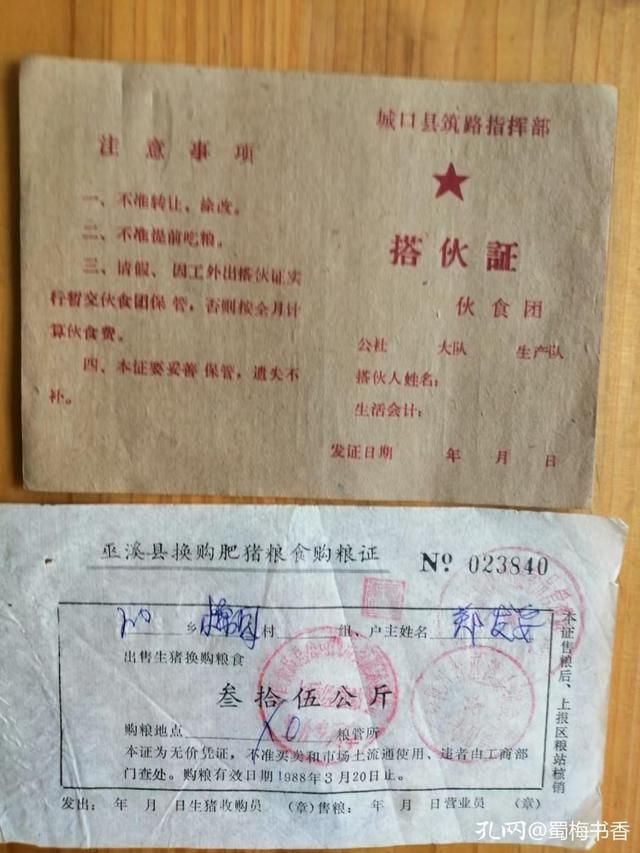 注意事项
一、不准转让、涂改。
二、不准提前吃粮。
三、请假、因工外出搭伙证实
行暂交伙食团保管，否则按全月计
算伙食费。
四、本证要妥善保管，遗失不
补。
城口县筑路指挥部
搭伙証
伙食团
公社 大队 生产队
搭伙人姓名：
生活会计：
发证日期 年 月 日
巫溪县换购肥猪粮食购粮证 № 023840
乡 村 组、户主姓名 郑发
出售生猪换购粮食
叁拾伍公斤
购粮地点 粮管所
本证为无价凭证，不准买卖和市场上流通使用、违者由工商部
门查处。购粮有效日期1988年3月20日止。
发出：年 月 日生猪收购员 （章）售粮：年 月 日营业员 （章）
本证售粮后、上报区粮站核销
孔网@蜀梅书香